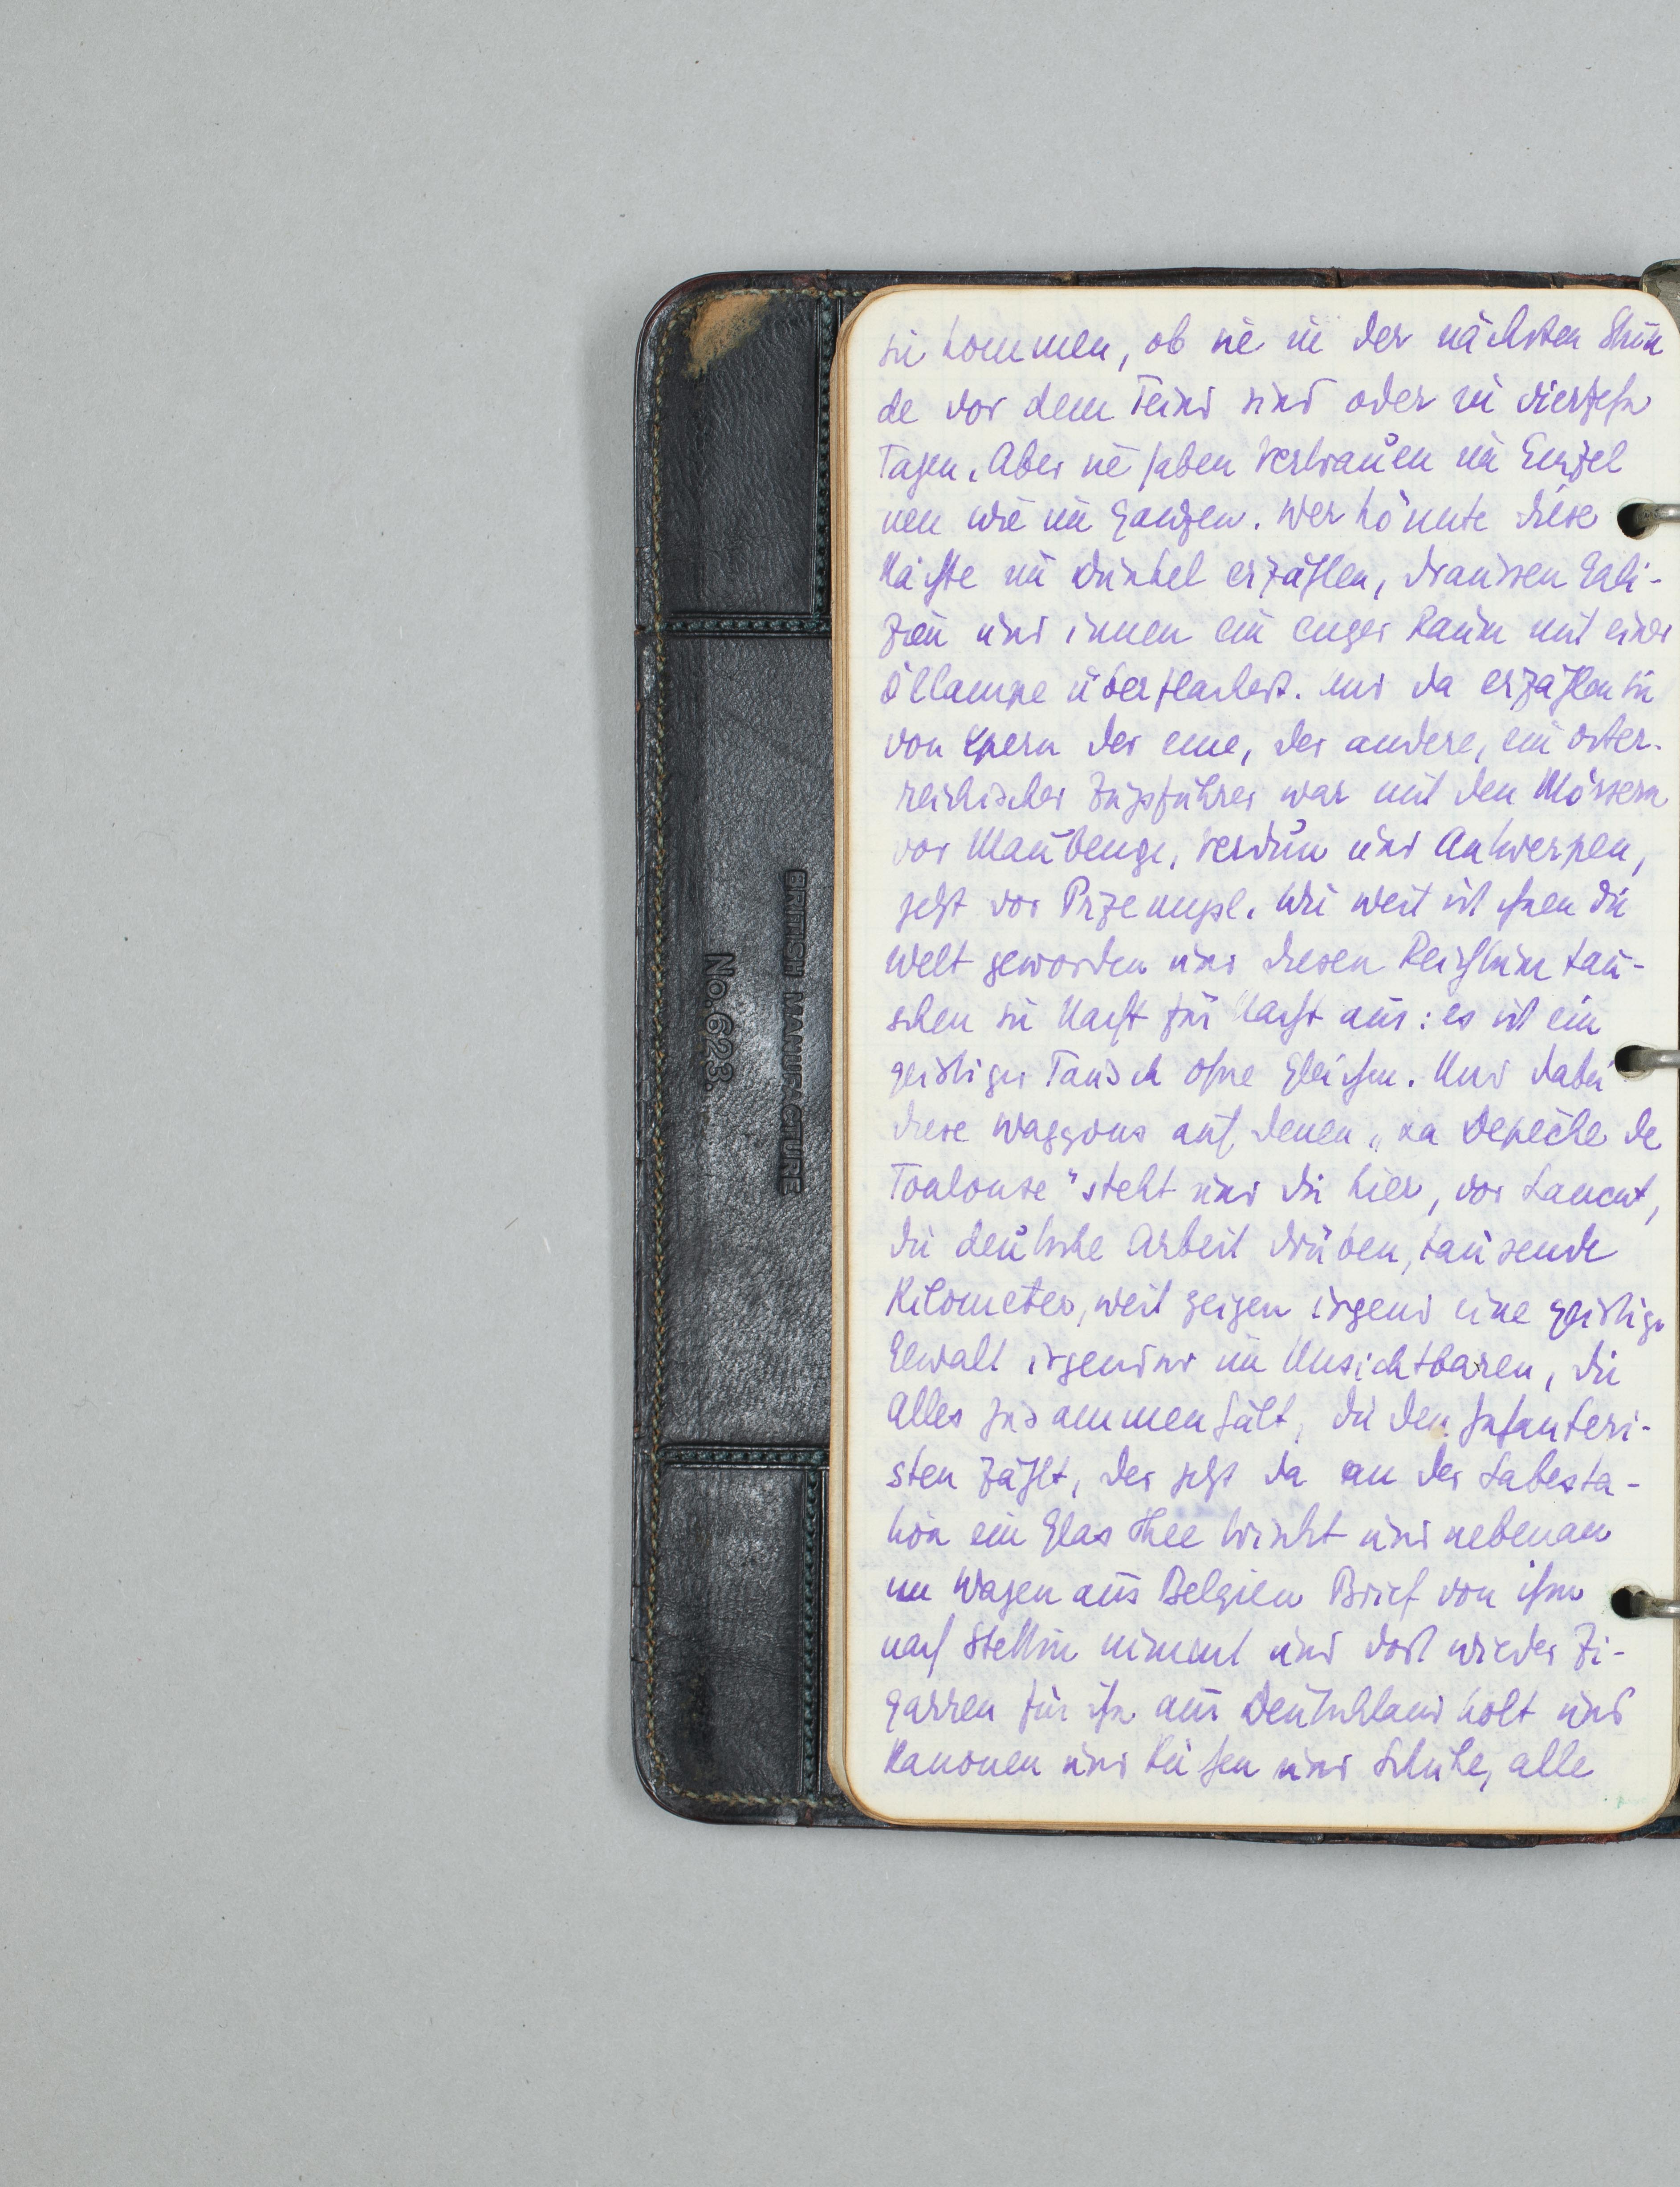 sie kommen, ob sie in der nächsten Stun
de vor dem Feind sind oder in vierzehn
Tagen. Aber sie haben Vertrauen im Einzel
nen wie im Ganzen. Wer könnte diese
Nächte im Dunkel erzählen, draussen Gali-
zien und innen ein enger Raum mit einer
Öllampe überflackert. Und da erzählen sie
von Ypern der eine, der andere, ein öster-
reichischer Zugsführer war mit den Mörsern
vor Maubeuge, Verdun und Antwerpen,
jetzt vor Przemysl. Wie weit ist ihnen die
Welt geworden und diesen Reichtum tau-
schen sie Nacht für Nacht aus: es ist ein
geistiger Tausch ohne Gleichen. Und dabei
diese Waggons auf denen „La Depêche de
Toulouse" steht und die hier, vor Lancut,
die deutsche Arbeit drüben, tausende
Kilometer, weit zeigen irgend eine geistige
Gewalt irgendwo im Unsichtbaren, die
Alles zusammenhält, die den Infanteri-
sten zählt, der jetzt da an der Labesta-
tion ein Glas Thee trinkt und nebenan
im Wagen aus Belgien Brief von ihm
nach Stettin nimmt und dort wieder Zi-
garren für ihn aus Deutschland holt und
Kanonen und Reifen und Schuhe, alle
BRITISH MANUFACTURE
No. 623.